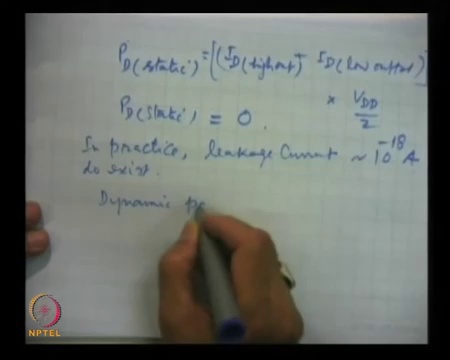 P_D(static) = [(I_D(high out) + I_D(low output)]
× V_DD/2
P_D(static) = 0.
In practice, leakage current ~ 10^-18 A
do exist.
Dynamic po
NPTEL